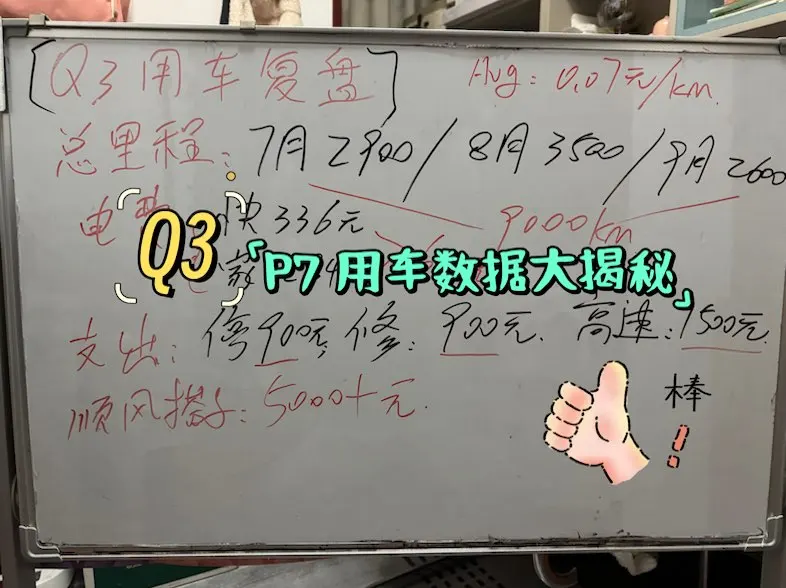 [Q3用车复盘]
Avg: 0.07元/km
总里程: 7月2900/8月3500/9月2600
电 快336元
9000km
Q3
「P7 用车数据大揭秘」
支出: 停900元, 修: 900元. 高速: 1500元.
顺风搭子: 5000+元.
棒
!